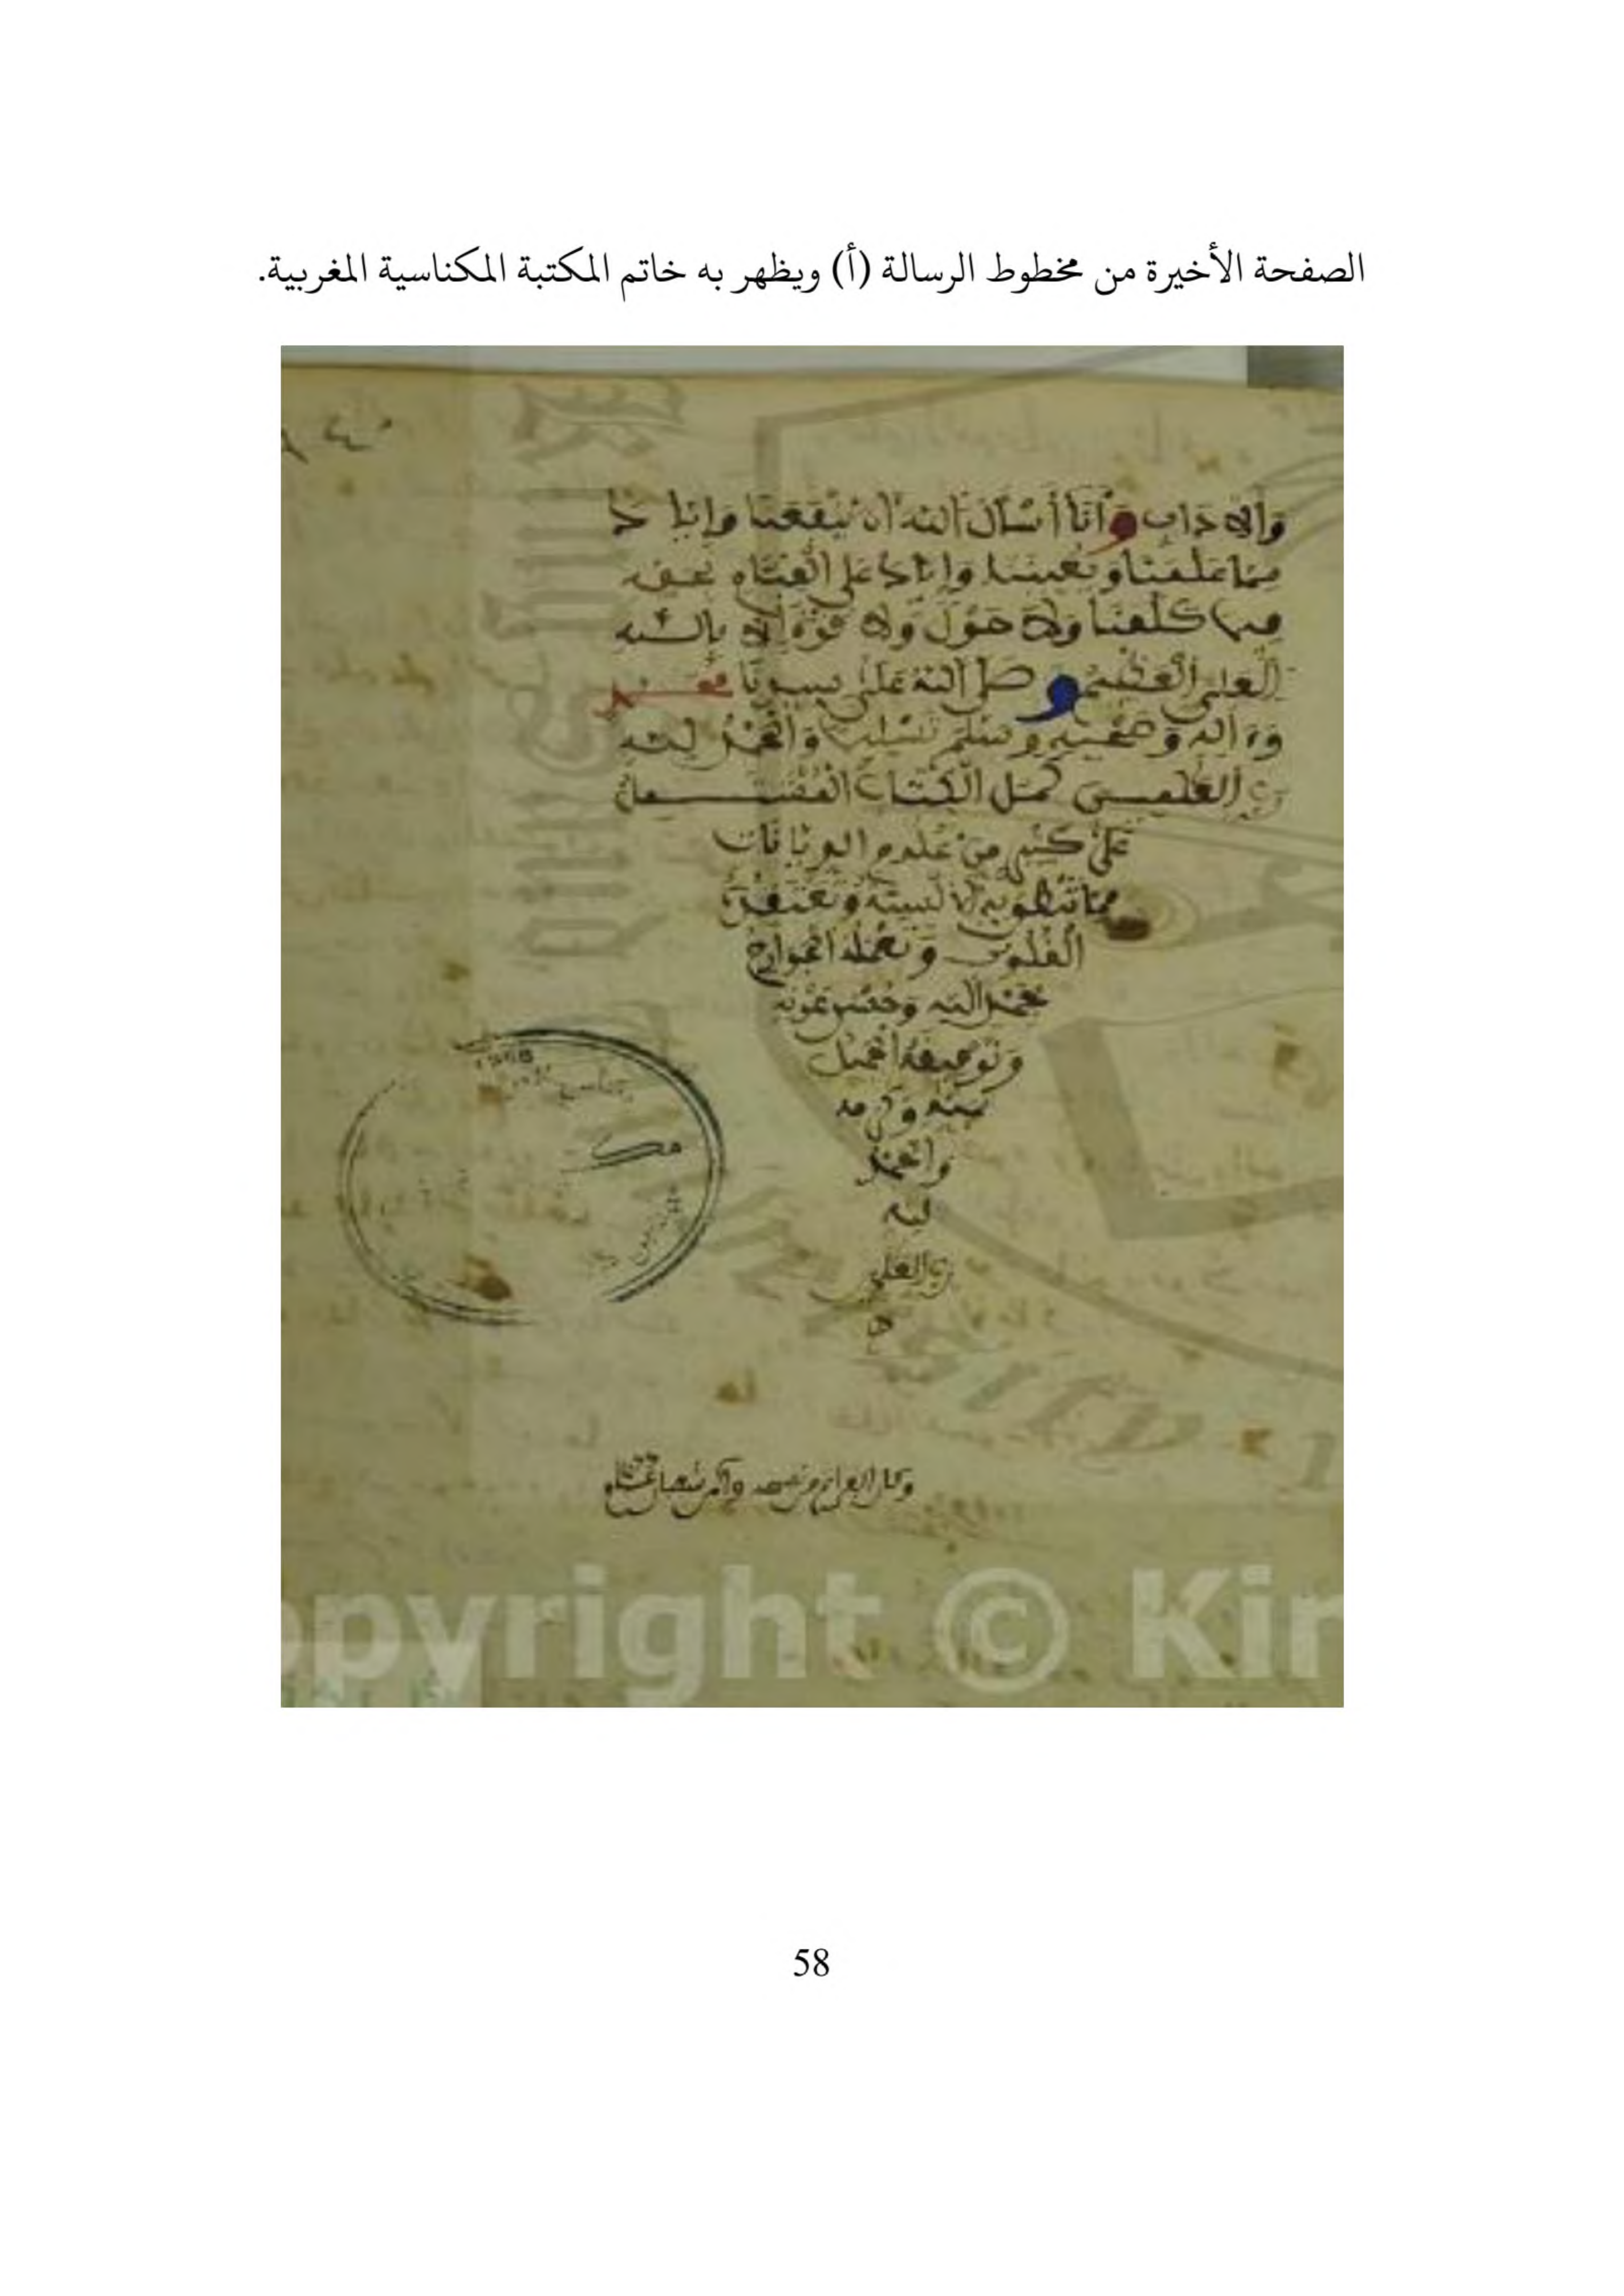 الصفحة الأخيرة من مخطوط الرسالة (أ) ويظهر به خاتم المكتبة المكناسية المغربية.
والاداب وانا أسأل الله ان ينفعنا وايا ك
بما علمنا ويعيننا واياك على القيام بحقه
فيما كلفنا ولا حول ولا قوة الا بالله
العلي العظيم وصلى الله على سيدنا محمد
وءاله وصحبه وسلم تسليما والحمد لله
رب العلمين كمل الكتاب المشتمل
على كثير من علوم الديانات
مما تنطق به الالسنة وتعتقده
القلوب وتعمله الجوارح
بحمد الله وحسن عونه
وتوفيقه الجميل
بمنه وكرمه
والحمد
لله
رب العلمي
ن
وكان الفراغ من
opyright © Kin
58